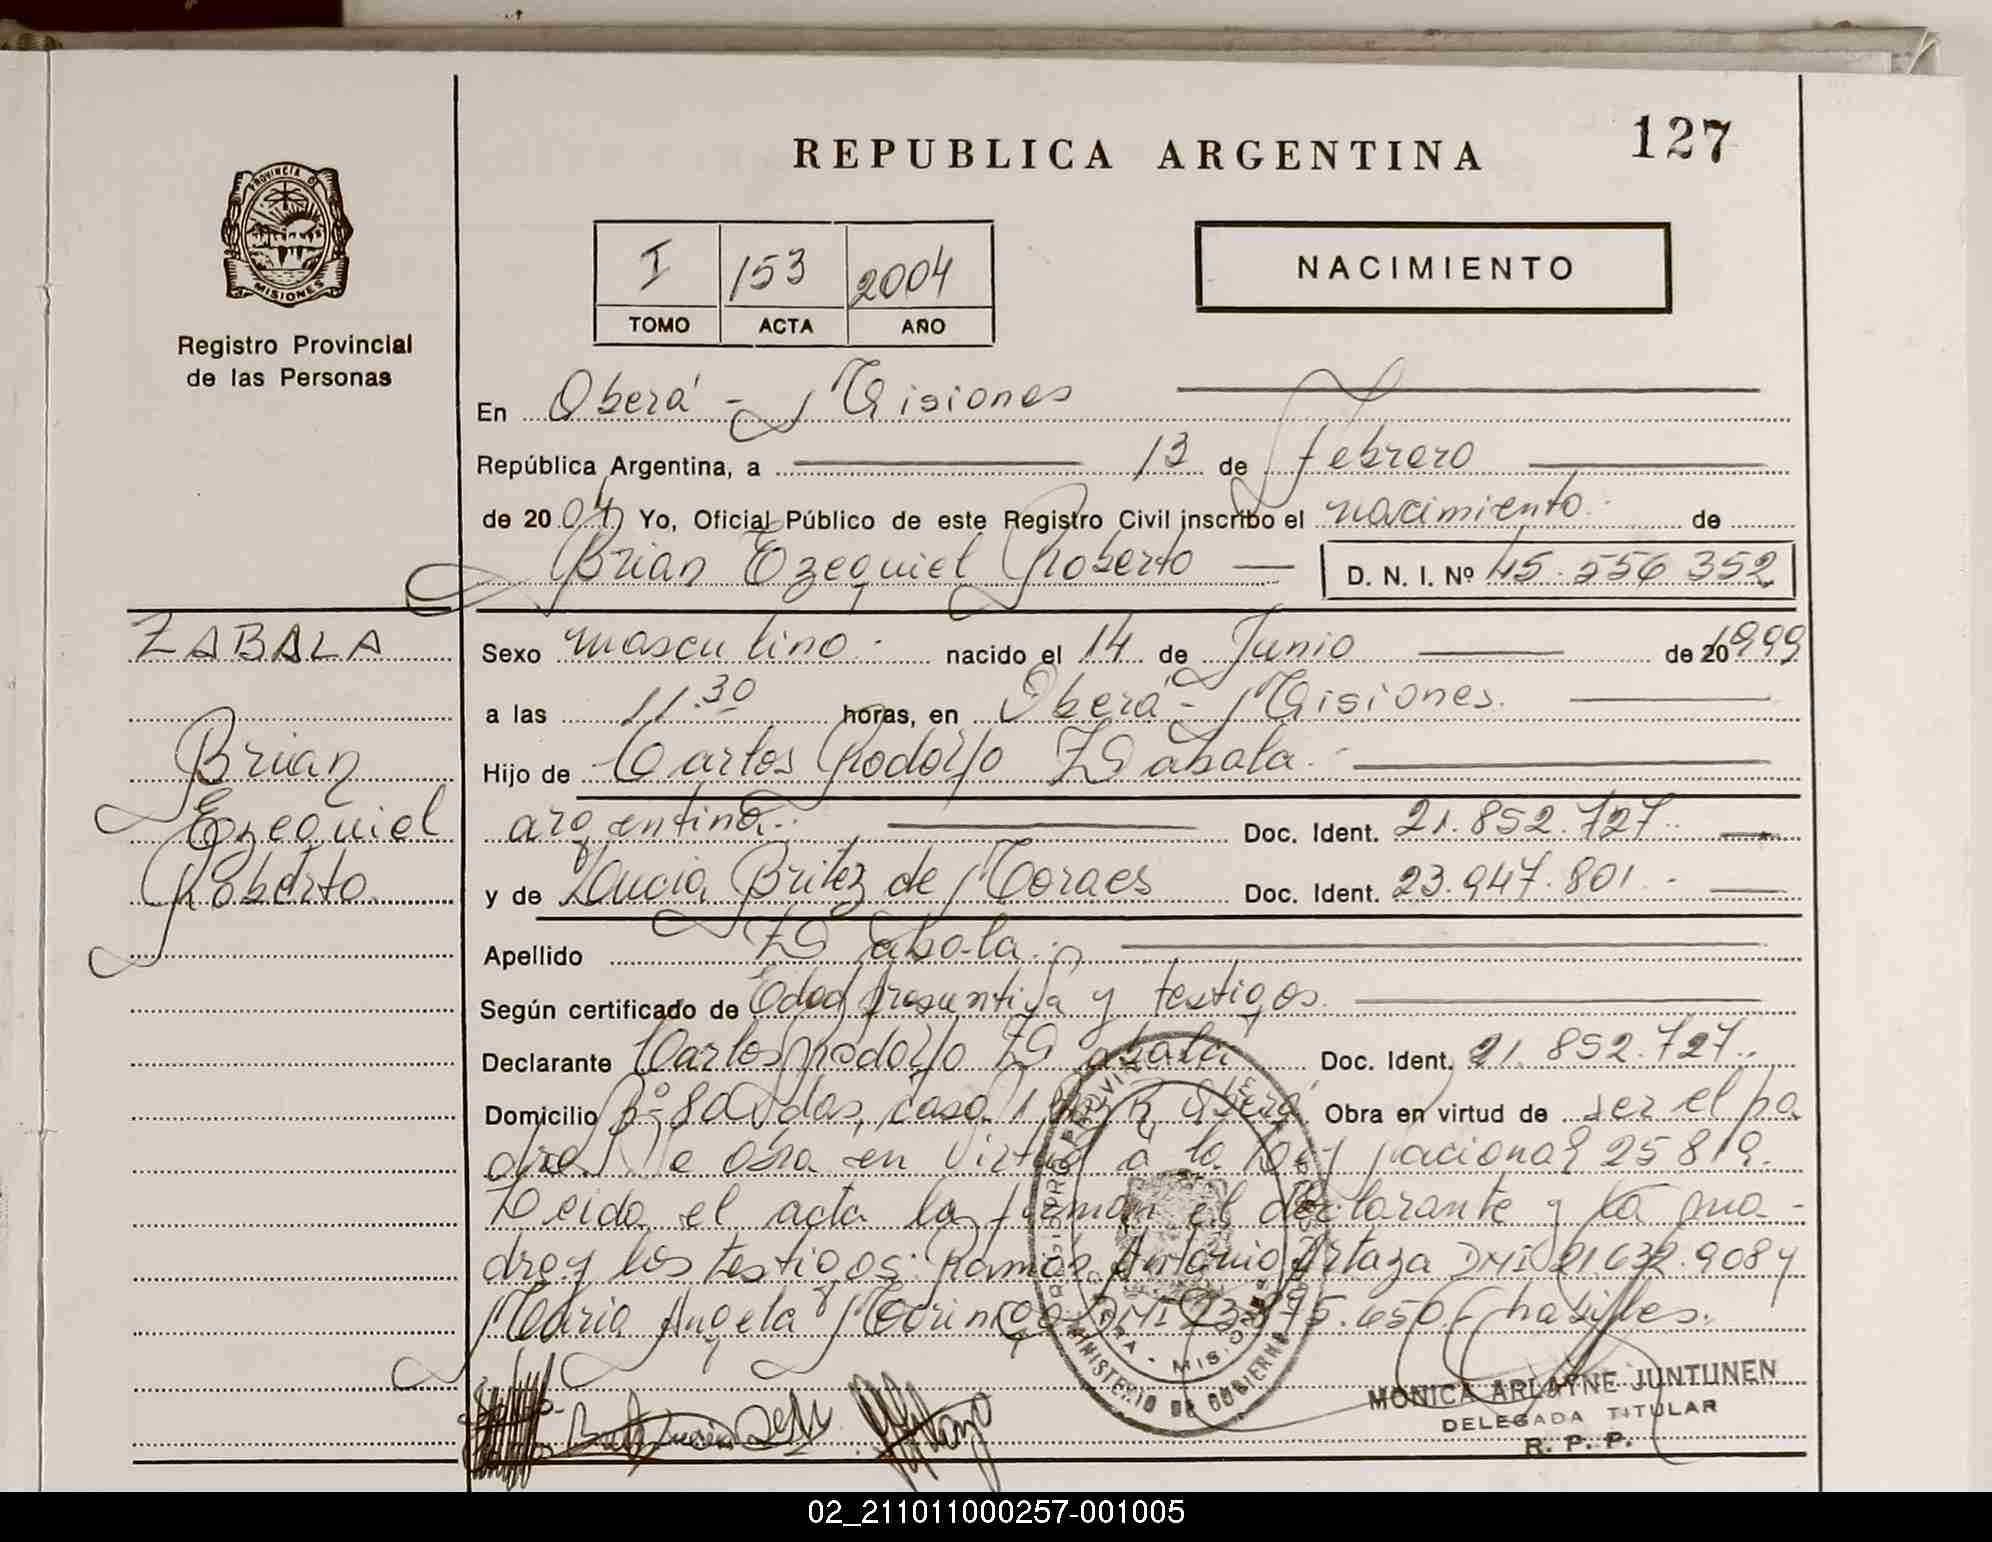 127
REPUBLICA ARGENTINA
PROVINCIA D
MISIONES
Registro Provincial
de las Personas
I 153 2004
TOMO ACTA AÑO
NACIMIENTO
En Oberá - Misiones
República Argentina, a 13 de febrero
de 2004 Yo, Oficial Público de este Registro Civil inscribo el nacimiento de
Brian Ezequiel Roberto D. N. I. Nº 45.556 352
ZABALA
Brian
Ezequiel
Roberto
Sexo masculino nacido el 14 de Junio de 20 1999
a las 11.30 horas, en Oberá - Misiones.
Hijo de Carlos Rodolfo Zabala.
argentina. Doc. Ident. 21.852.727
y de Lucia Britez de Moraes Doc. Ident. 23.947.801.
Apellido Zabala.
Según certificado de Edad presuntiva y testigos.
Declarante Carlos Rodolfo Zabala Doc. Ident. 21.852.727.
Domicilio Bº 80 Vdas, casa 1 Oberá Obra en virtud de ser el pa
dre. Se obra en virtud a la Ley nacional 25819.
Leida el acta la firman el declarante y la ma-
dre y los testigos: Ramón Antonio Artaza DNI 21.632.908 y
Maria Angela DNI habiles.
MINISTERIO DE GOBIERNO
MONICA ARLAYNE JUNTUNEN
DELEGADA TITULAR
R. P. P.
02_211011000257-001005